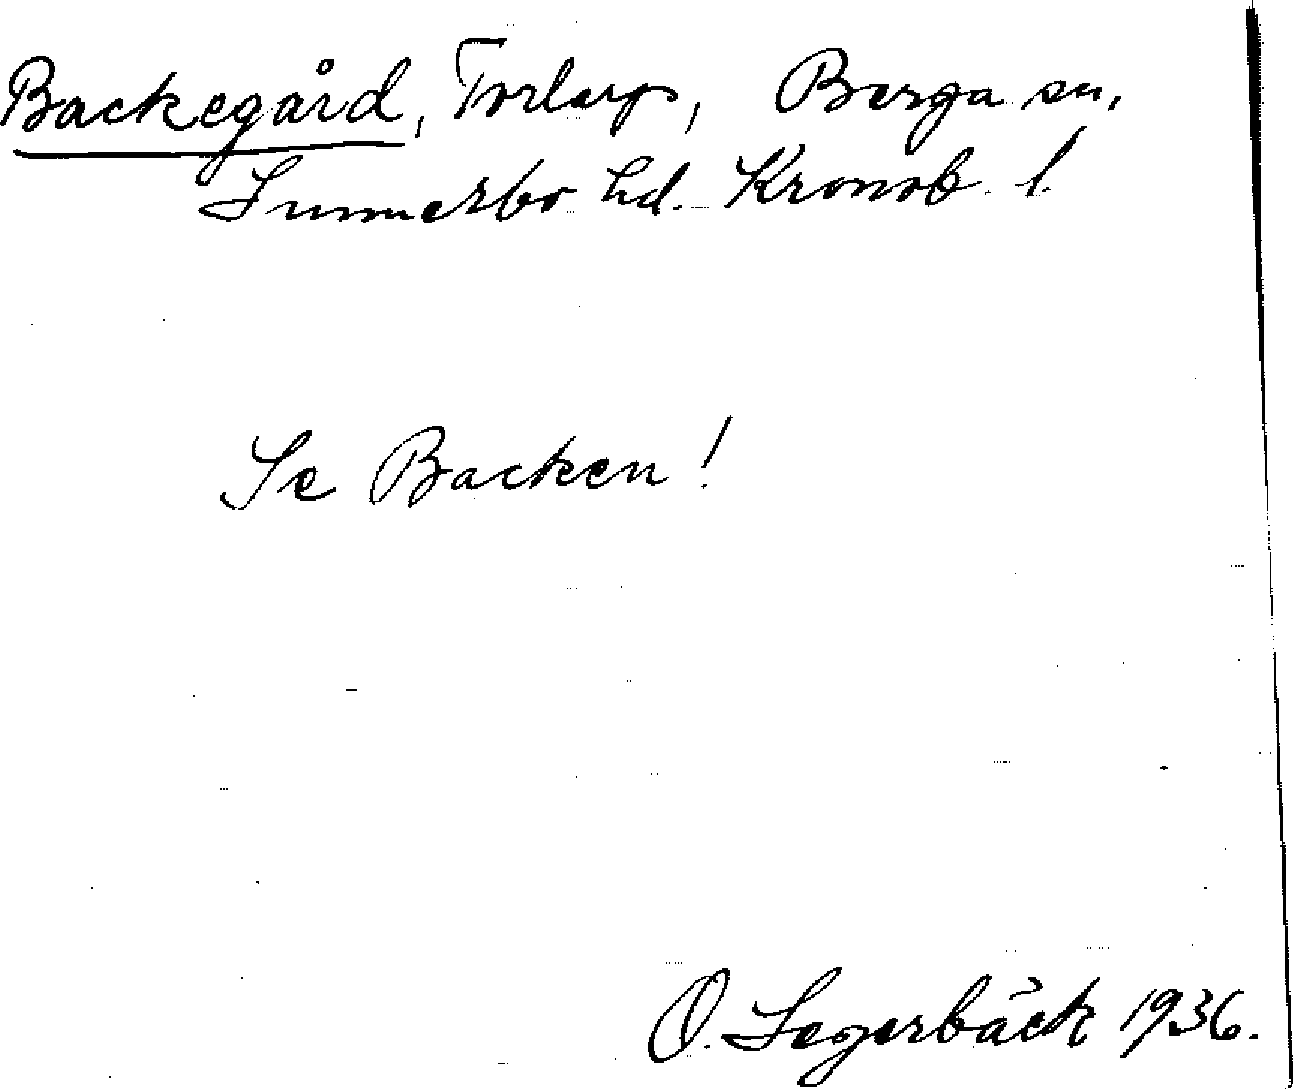 Backegård, Torlarp, Berga sn,
Sunnerbo hd. Kronob. l.
Se Backen!
O. Segerbäck 1936.